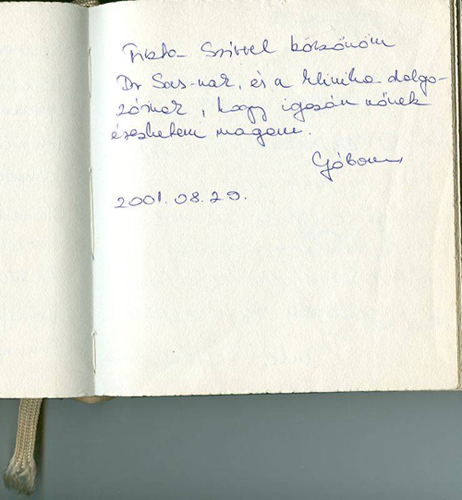 Tiszta Szívvel köszönöm
Dr Sas-nak, és a klinika dolgo-
zóinak, hogy igazán nőnek
érezhetem magam.
2001.08.29.